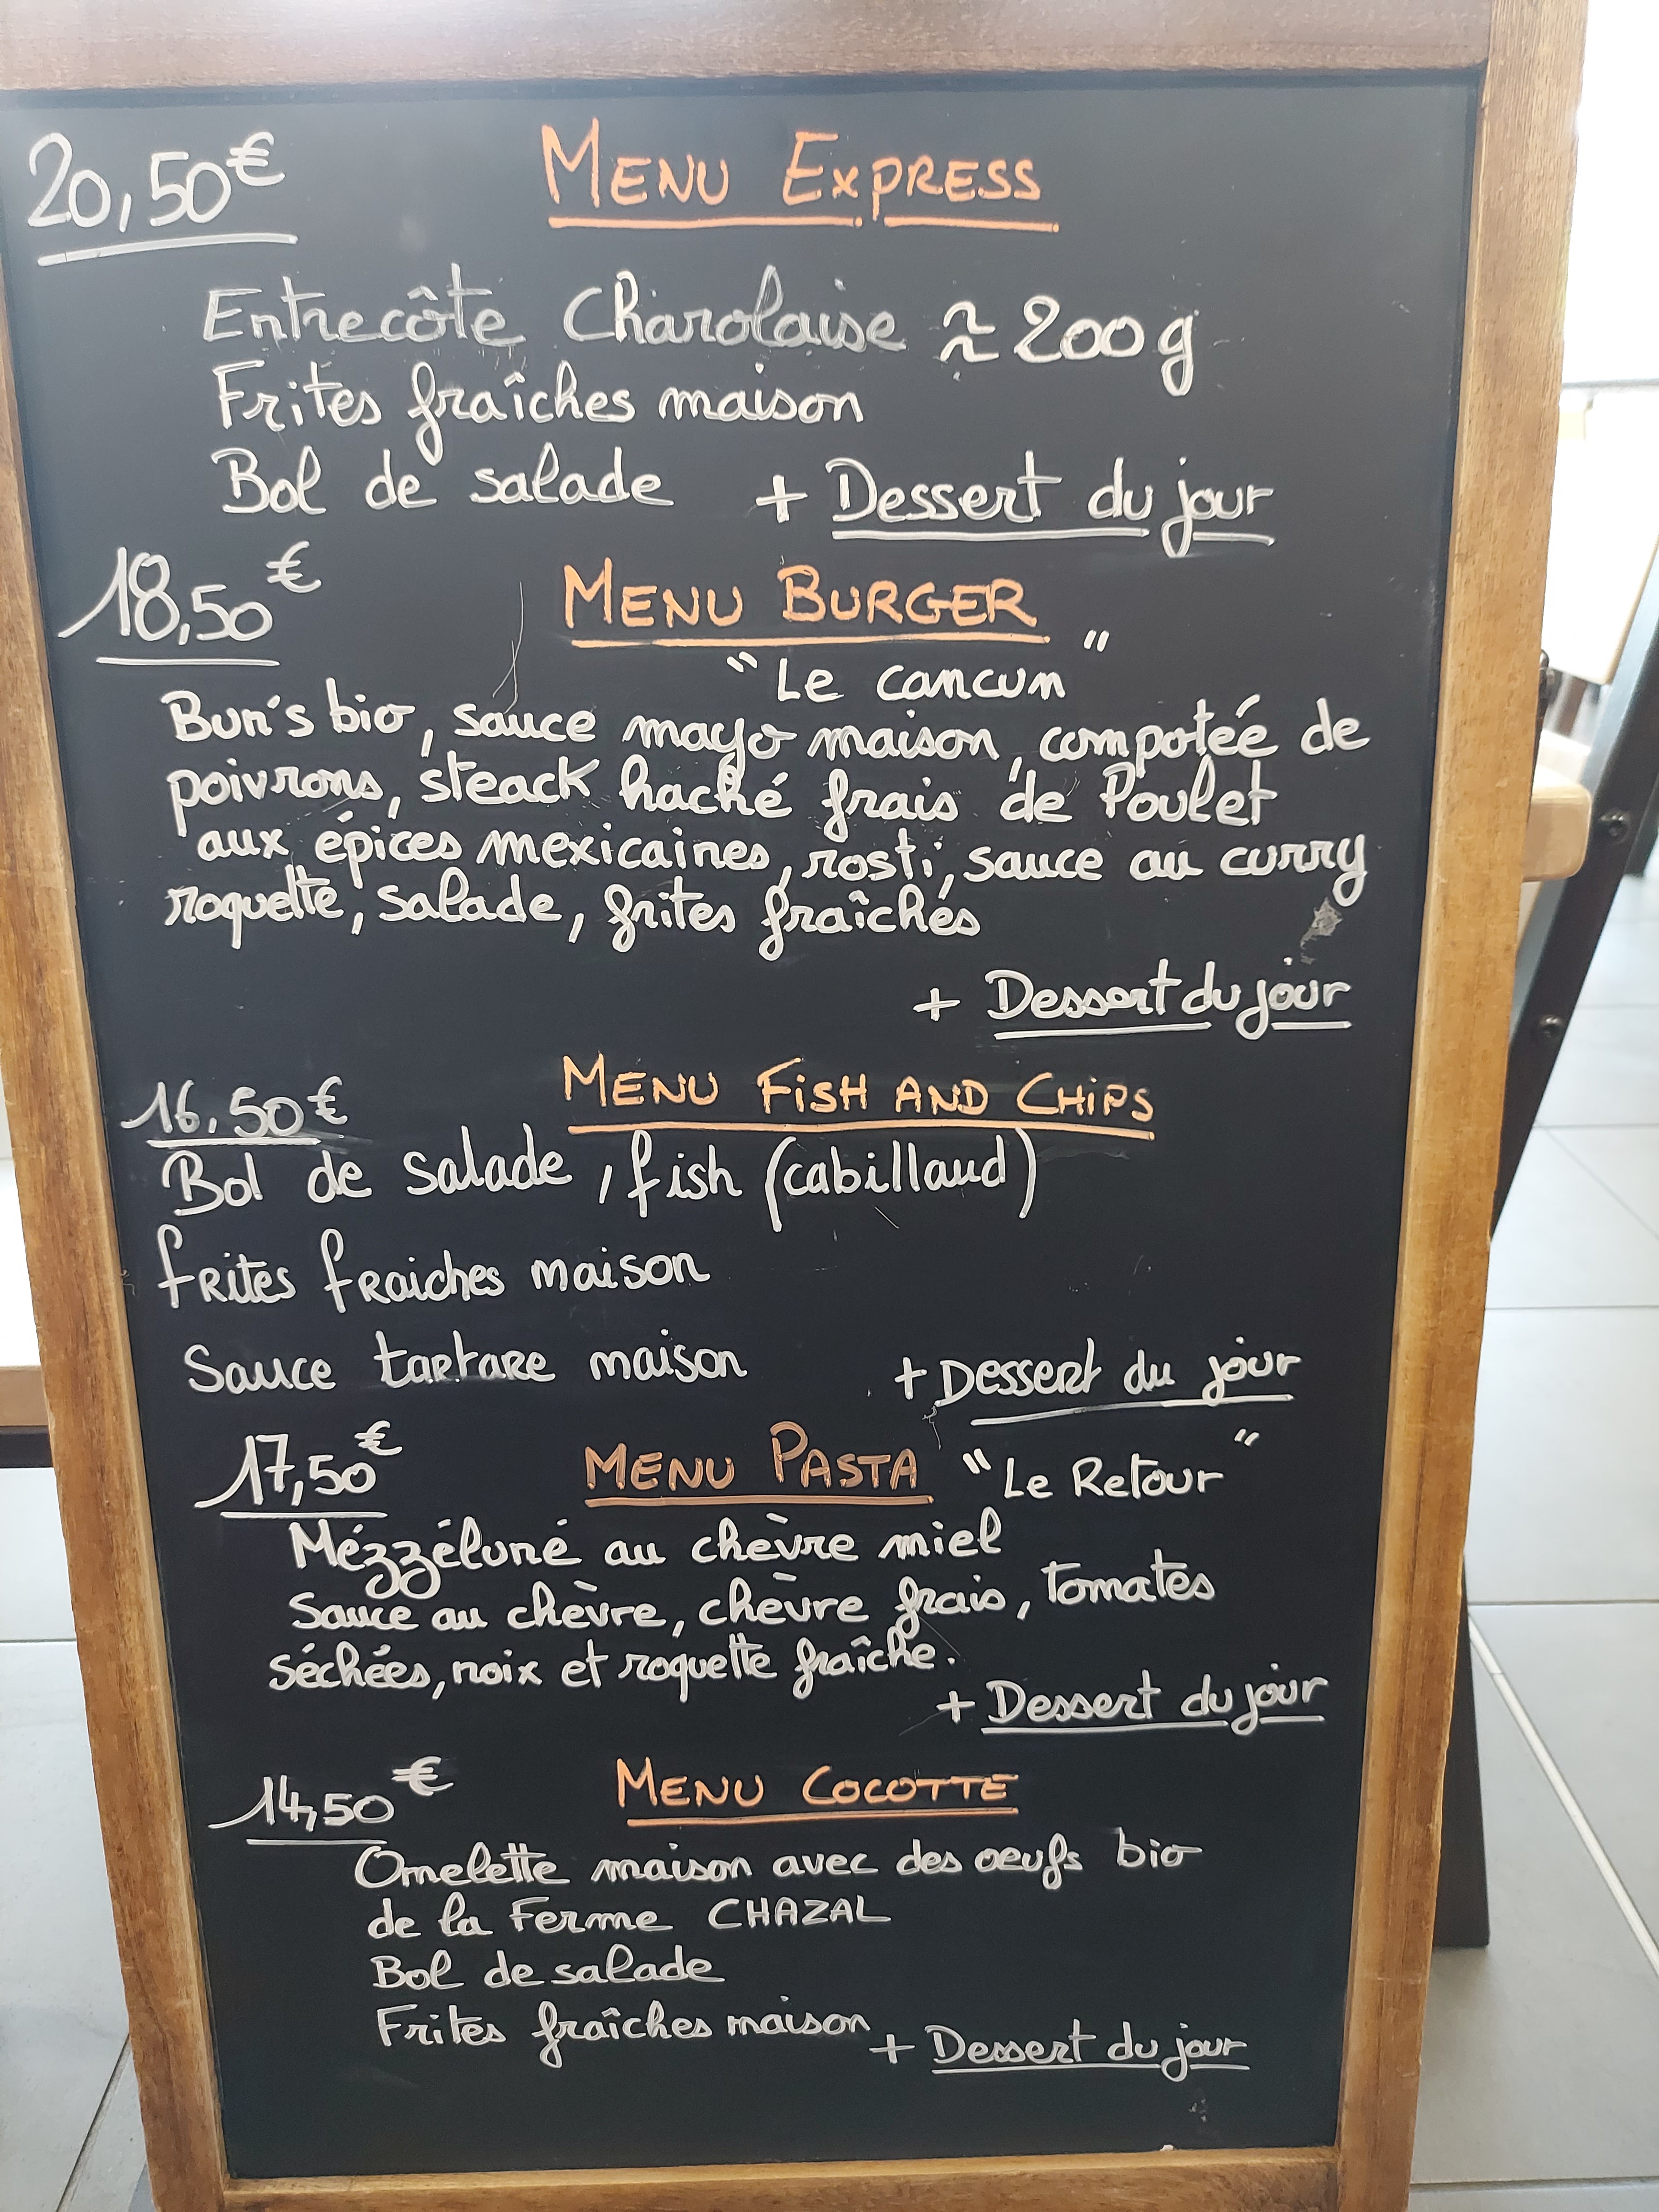 20,50€ MENU EXPRESS
Entrecôte Charolaise ≈ 200 g
Frites fraîches maison
Bol de salade + Dessert du jour
18,50€ MENU BURGER
"Le Cancun"
Bun's bio, sauce mayo maison, compotée de
poivrons, steack haché frais de Poulet
aux épices mexicaines, rosti, sauce au curry
roquette, salade, frites fraîches
+ Dessert du jour
16,50€ MENU FISH AND CHIPS
Bol de salade, fish (cabillaud)
frites fraiches maison
Sauce tartare maison + Dessert du jour
17,50€ MENU PASTA "Le Retour"
Mézzéluné au chèvre miel
Sauce au chèvre, chèvre frais, tomates
séchées, noix et roquette fraîche.
+ Dessert du jour
14,50€ MENU COCOTTE
Omelette maison avec des oeufs bio
de la Ferme CHAZAL
Bol de salade
Frites fraîches maison + Dessert du jour